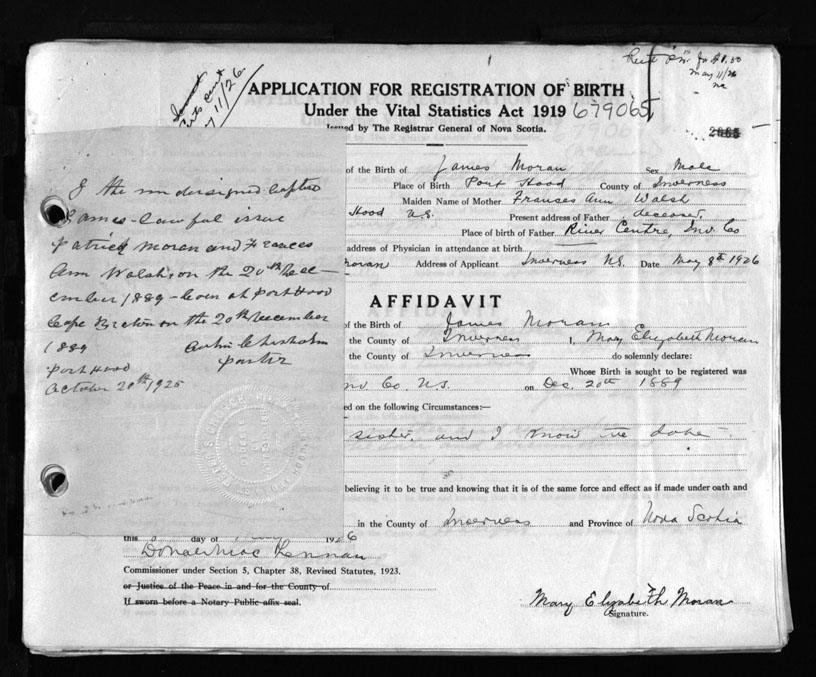 May 11/26
APPLICATION FOR REGISTRATION OF BIRTH
Under the Vital Statistics Act 1919 679065
Issued by The Registrar General of Nova Scotia.
2665
of the Birth of James Moran Sex Male
Place of Birth Port Hood County of Inverness
Maiden Name of Mother Frances Ann Walsh
Hood N.S. Present address of Father deceased
Place of birth of Father River Centre, Inv. Co
address of Physician in attendance at birth
Moran Address of Applicant Inverness N.S. Date May 8th 1926
I the undersigned baptised
James - lawful issue
Patrick Moran and Frances
Ann Walsh, on the 20th Dec-
ember 1889 - born at Port Hood
Cape Breton on the 20th December
1889
Chisholm
Pastor
Port Hood
October 20th 1925
AFFIDAVIT
of the Birth of James Moran
the County of Inverness I, Mary Elizabeth Moran
the County of Inverness do solemnly declare:
Whose Birth is sought to be registered was
Inv. Co. N.S. on Dec. 20th 1889
ed on the following Circumstances:—
sister, and I know the date.
believing it to be true and knowing that it is of the same force and effect as if made under oath and
in the County of Inverness and Province of Nova Scotia
this day of 1926
Donald Mac Lennan
Commissioner under Section 5, Chapter 38, Revised Statutes, 1923.
or Justice of the Peace in and for the County of
If sworn before a Notary Public affix seal.
Mary Elizabeth Moran
Signature.